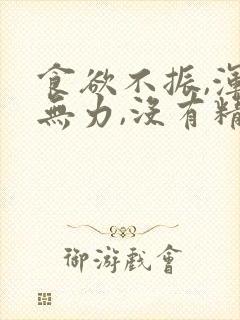 食欲不振,渾
無力,沒有精
御游戲會